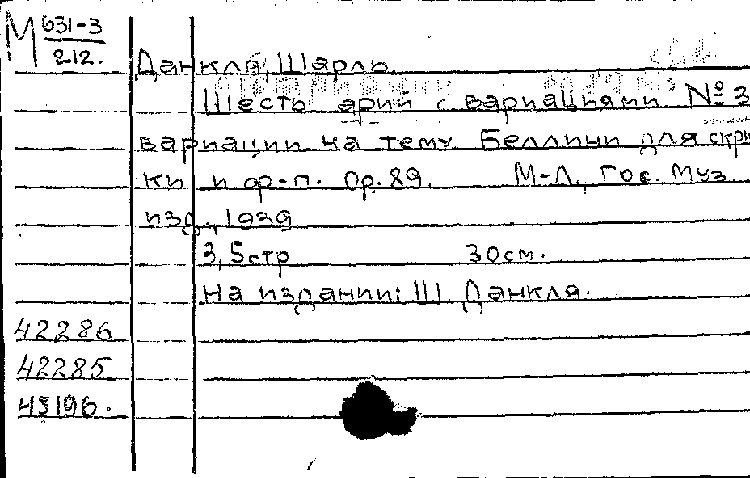 М 631-3
212.
Данкля, Шарль.
Шесть арий с вариациями. № 3
вариации на тему Беллини для скрип
ки и ф-п. Ор. 89. М-Л, Гос. Муз.
изд., 1939
3, 5 стр 30 см.
На издании: Ш. Данкля.
42286
42285
43196.